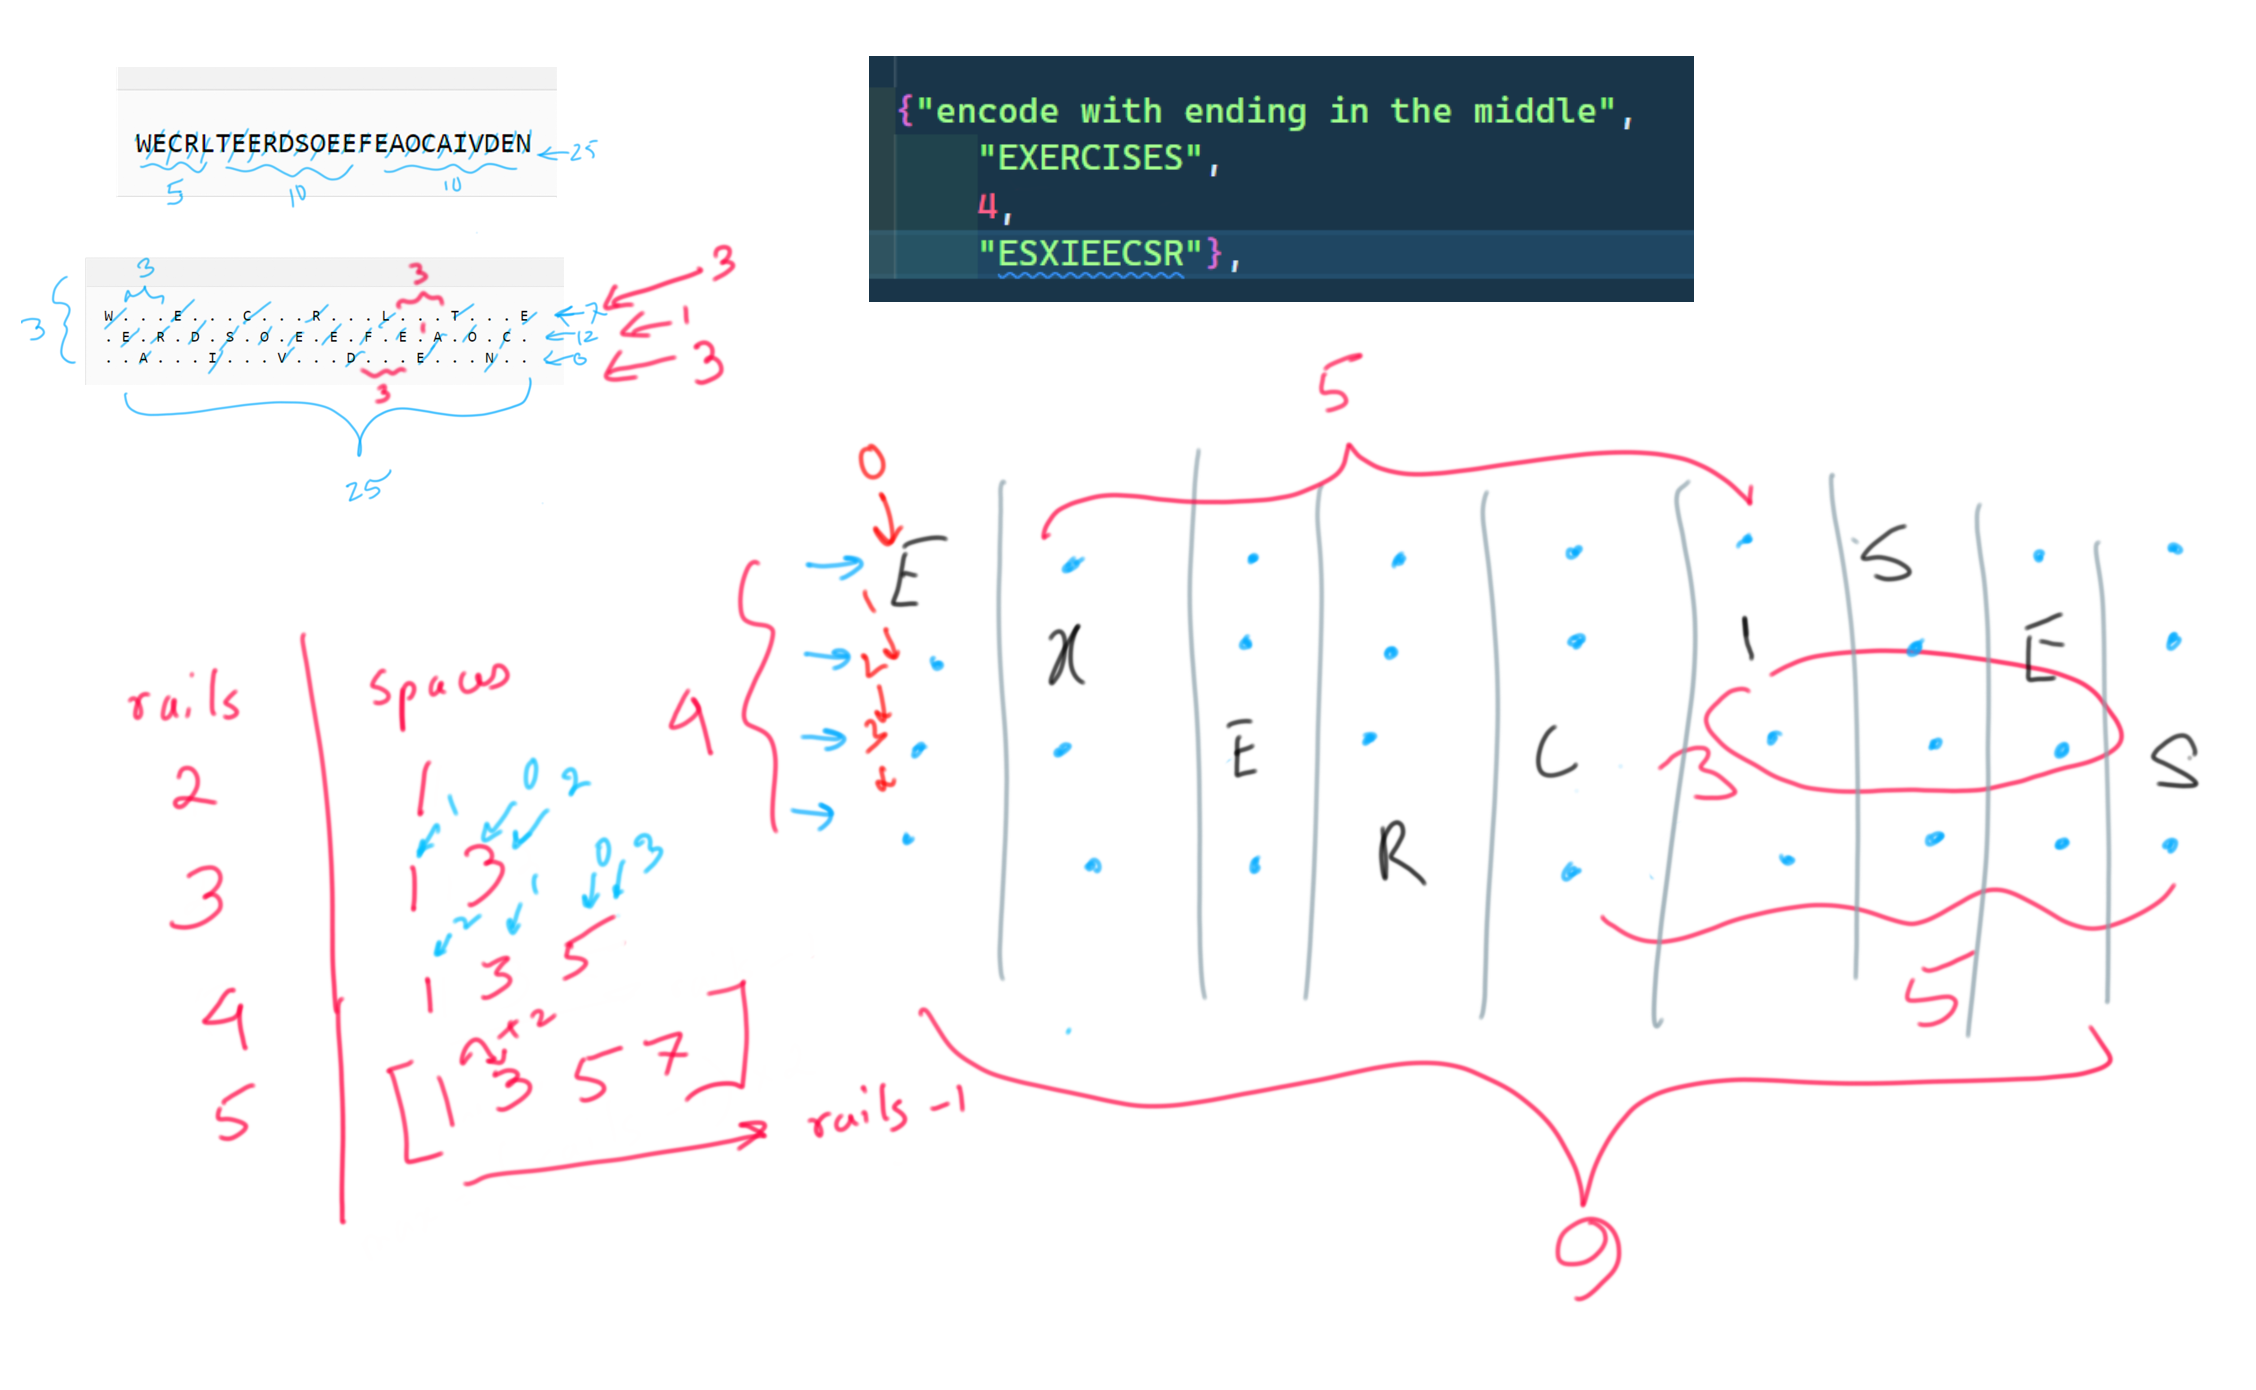 WECRLTEERDSOEEFEAOCAIVDEN
25
5
10
10
3
3
3
W...E...C...R...L...T...E
7
.E.R.D.S.O.E.E.F.E.A.O.C.
1
12
..A...I...V...D...E...N..
3
25
3
1
3
{"encode with ending in the middle",
"EXERCISES",
4,
"ESXIEECSR"},
5
0
E . . . . . S . .
1
. X . . . I . E .
2
. . E . C . . . S
3
. . . R . . . . .
4
3
5
9
rails spaces
2 1
1 0 2
3 1 3
2 1 0 3
4 1 3 5
+2
5 [1 3 5 7]
rails -1